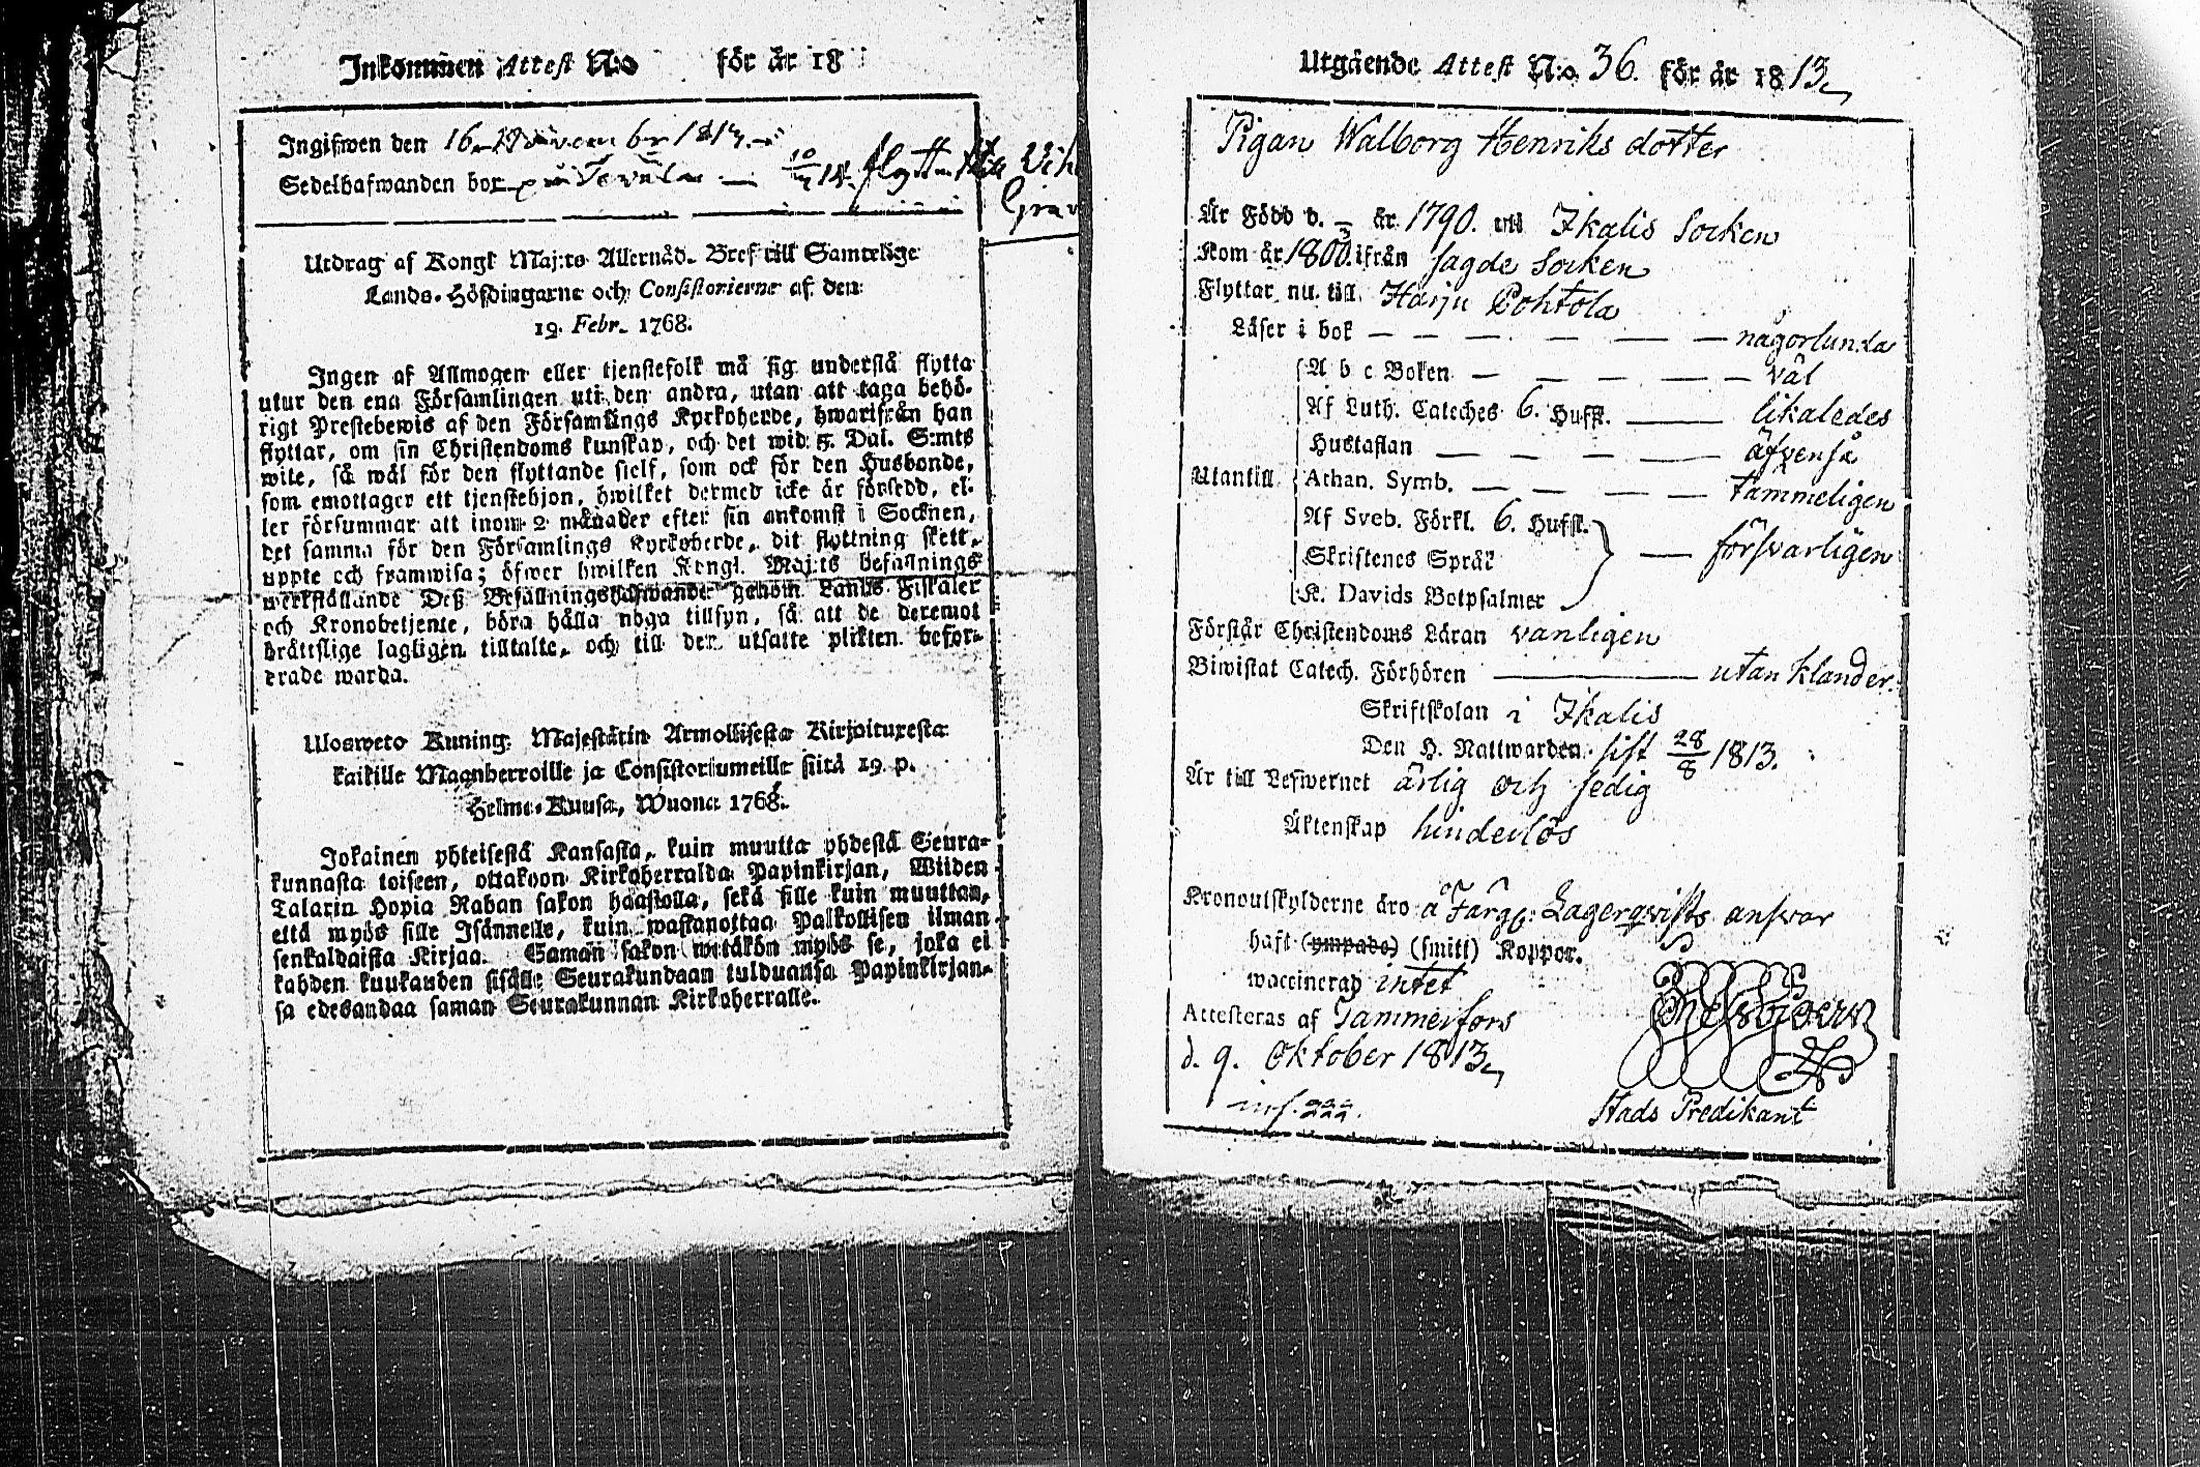 Inkommen Attest N:o för år 18
Ingifwen den 16 November 1813.
Sedelhafwanden bor på 14. flytt
Utdrag af Kongl Maj:ts Allernåd. Bref till Samtelige
Lands-Höfdingarne och Consistorierne af den
19. Febr. 1768.
Ingen af Allmogen eller tjenstefolk må sig understå flytta
utur den ena Församlingen uti den andra, utan att taga behö-
rigt Prestebewis af den Församlings Kyrkoherde, hwarifrån han
flyttar, om sin Christendoms kunskap, och det wid 5. Dal. S:mts
wite, så wäl för den flyttande sielf, som ock för den Husbonde,
som emottager ett tjenstehjon, hwilket dermed icke är försedd, el-
ler försummar att inom 2 månader efter sin ankomst i Socknen,
det samma för den Församlings Kyrkoherde, dit flyttning skett,
uppte och framwisa; öfwer hwilken Kongl. Maj:ts befallnings
werkställande Deß Befallningshafwande genom Lands Fiskaler
och Kronobetjente, böra hålla noga tillsyn, så att de deremot
brättslige lagligen tilltalte, och till den utsatte plikten befor-
drade warda.
Ulosweto Kuning. Majestätin Armollisesta Kirjoituxesta
kaikille Maanherroille ja Consistoriumeille siitä 19. p.
Helme-Kuusa, Wuona 1768.
Jokainen yhteisestä Kansasta, kuin muutta yhdestä Seura-
kunnasta toiseen, ottakoon Kirkoherralda Papinkirjan, Wiiden
Talarin Hopia Rahan sakon haastolla, sekä sille kuin muuttaa,
että myös sille Isännelle, kuin wastanottaa Palkollisen ilman
senkaldaista Kirjaa. Saman sakon wetäkön myös se, joka ei
kahden kuukauden sisälle Seurakundaan tulduansa Papinkirjan-
sa edesandaa saman Seurakunnan Kirkoherralle.
Utgående Attest N:o 36. för år 1813
Pigan Walborg Henriks dotter
Är Född d. – år 1790. uti Ikalis Socken
Kom år 1803. ifrån sagde Socken
Flyttar nu till Harju Pohtola
Läser i bok — — — — — — någorlunda
A b c Boken — — — — — väl
Af Luth. Cateches 6. Hufst. —— likaledes
Hustaflan — — — —— äfvenså
Utantill Athan. Symb. — — — — tämmeligen
Af Sveb. Förkl. 6. Hufst.
Skriftenes Språk — försvarligen
K. Davids Botpsalmer
Förstår Christendoms Läran vanligen
Biwistat Catech. Förhören ———— utan klander.
Skriftskolan i Ikalis
Den H. Nattwarden sist 28/8 1813.
Är till Lefwernet ärlig och sedig
Äktenskap hinderlös
Kronoutskylderne äro å Färg: Lagerqvists answar
haft (ympade) (smitt) Koppor.
waccinerad intet
Attesteras af Tammerfors
d. 9. Oktober 1813
Stads Predikant